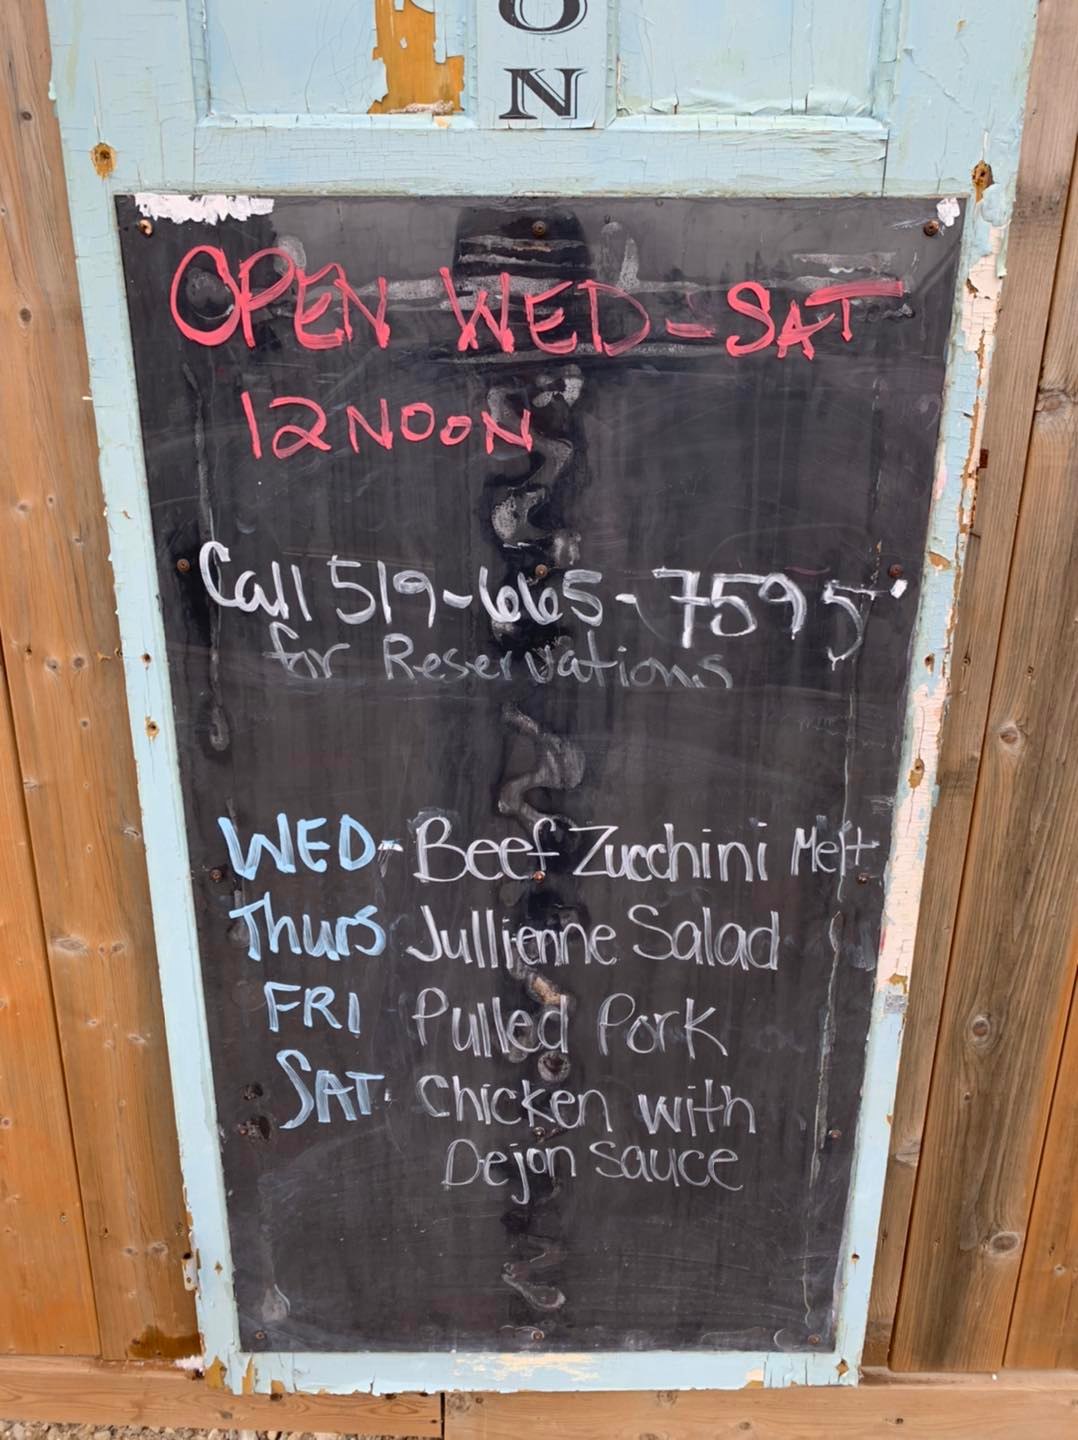 O
N
OPEN WED-SAT
12 NOON
Call 519-665-7595
for Reservations
WED- Beef Zucchini Melt
Thurs Jullienne Salad
FRI Pulled Pork
SAT. Chicken with
Dejon Sauce